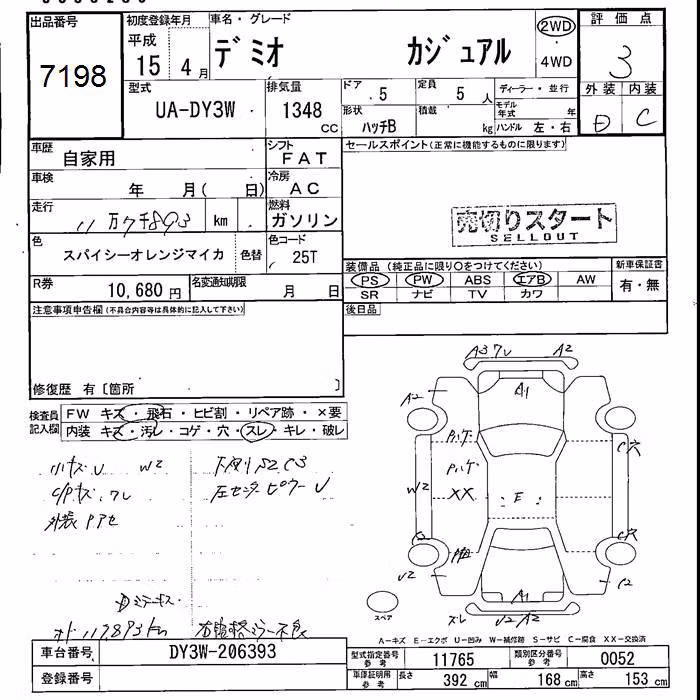 出品番号
7198
初度登録年月
平成
15 4月
車名・グレード
デミオ カジュアル
2WD
4WD
評価点
3
外装 内装
D C
型式
UA-DY3W
排気量
1348
cc
ドア
5
定員
5人
ディーラー・並行
モデル年式 年
形状
ハッチB
積載
kg
ハンドル 左・右
車歴
自家用
シフト
FAT
セールスポイント(正常に機能するものに限ります)
車検
年 月( 日)
冷房
AC
走行
11万7千893 km
燃料
ガソリン
売切りスタート
SELLOUT
色
スパイシーオレンジマイカ
色替
色コード
25T
装備品(純正品に限り○をつけてください)
新車保証書
PS PW ABS エアB AW
有・無
SR ナビ TV カワ
R券
10,680円
名変通知期限
月 日
注意事項申告欄(不具合内容等は具体的に記入して下さい)
後日品
修復歴 有〔箇所 〕
検査員記入欄
FW キズ・飛石・ヒビ割・リペア跡・×要
内装 キズ・汚レ・コゲ・穴・スレ・キレ・破レ
小キズU W2
下廻りS2C3
C/Pキズ、ワレ
左センターピラーU
外装ヤケアセ
内ミラーキズ
オド117893km
A3ワレ A2
A1
A2
C穴
W2
XX
E
C穴
U2
C2
A1
スレ
U2/A2
スペア
A-キズ E-エクボ U-凹み W-補修跡 S-サビ C-腐食 XX-交換済
車台番号
DY3W-206393
登録番号
型式指定番号
参考
11765
類別区分番号
参考
0052
車庫証明用
参考
長さ
392 cm
幅
168 cm
高さ
153 cm